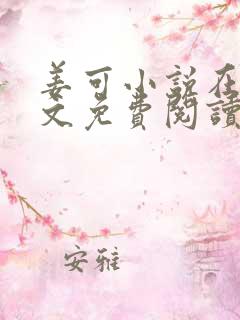 姜可小说在
文免費閱讀
安雅